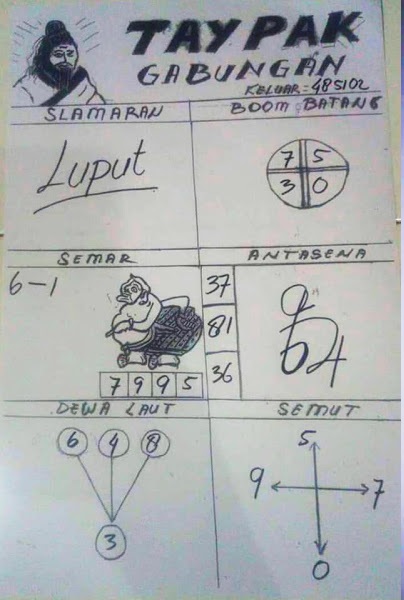 TAYPAK
GABUNGAN
KELUAR = 485102
SLAMARAN
BOOM BATANG
Luput
7 5
3 0
SEMAR
ANTASENA
6-1
37
81
36
7 9 9 5
DEWA LAUT
SEMUT
6 4 8
3
5
9 7
0